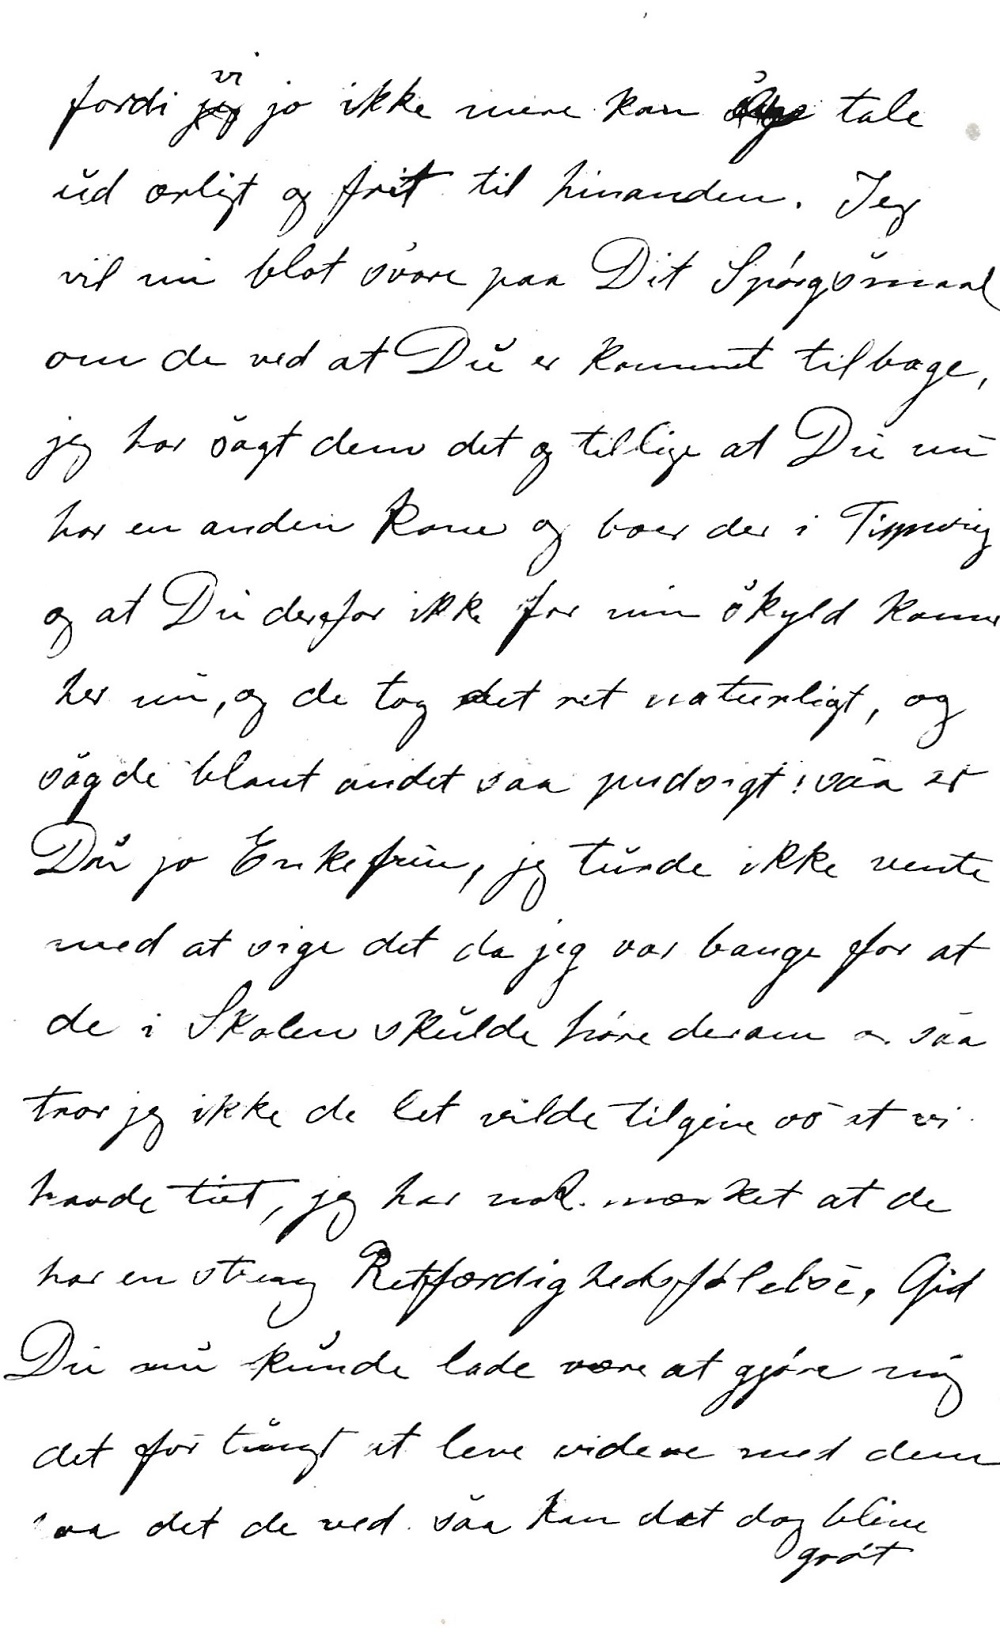 fordi vi jo ikke mere kan tale
ud ærligt og frit til hinanden. Jeg
vil nu blot svare paa Dit Spørgsmaal
om de ved at Du er kommet tilbage,
jeg har sagt dem det og tillige at Du nu
har en anden Kone og boer der i
og at Du derfor ikke for min Skyld kommer
her nu, og de tog det ret naturligt, og
sagde blant andet saa pudsigt: saa er
Du jo Enkefrue, jeg turde ikke vente
med at sige det da jeg var bange for at
de i Skolen skulde høre derom og saa
tror jeg ikke de let vilde tilgive os at vi
havde tiet, jeg har nok mærket at de
har en streng Retfærdighedsfølelse, Gid
Du nu kunde lade være at gjøre mig
det for tungt at leve videre med dem
paa det de ved saa kan det dog blive
godt